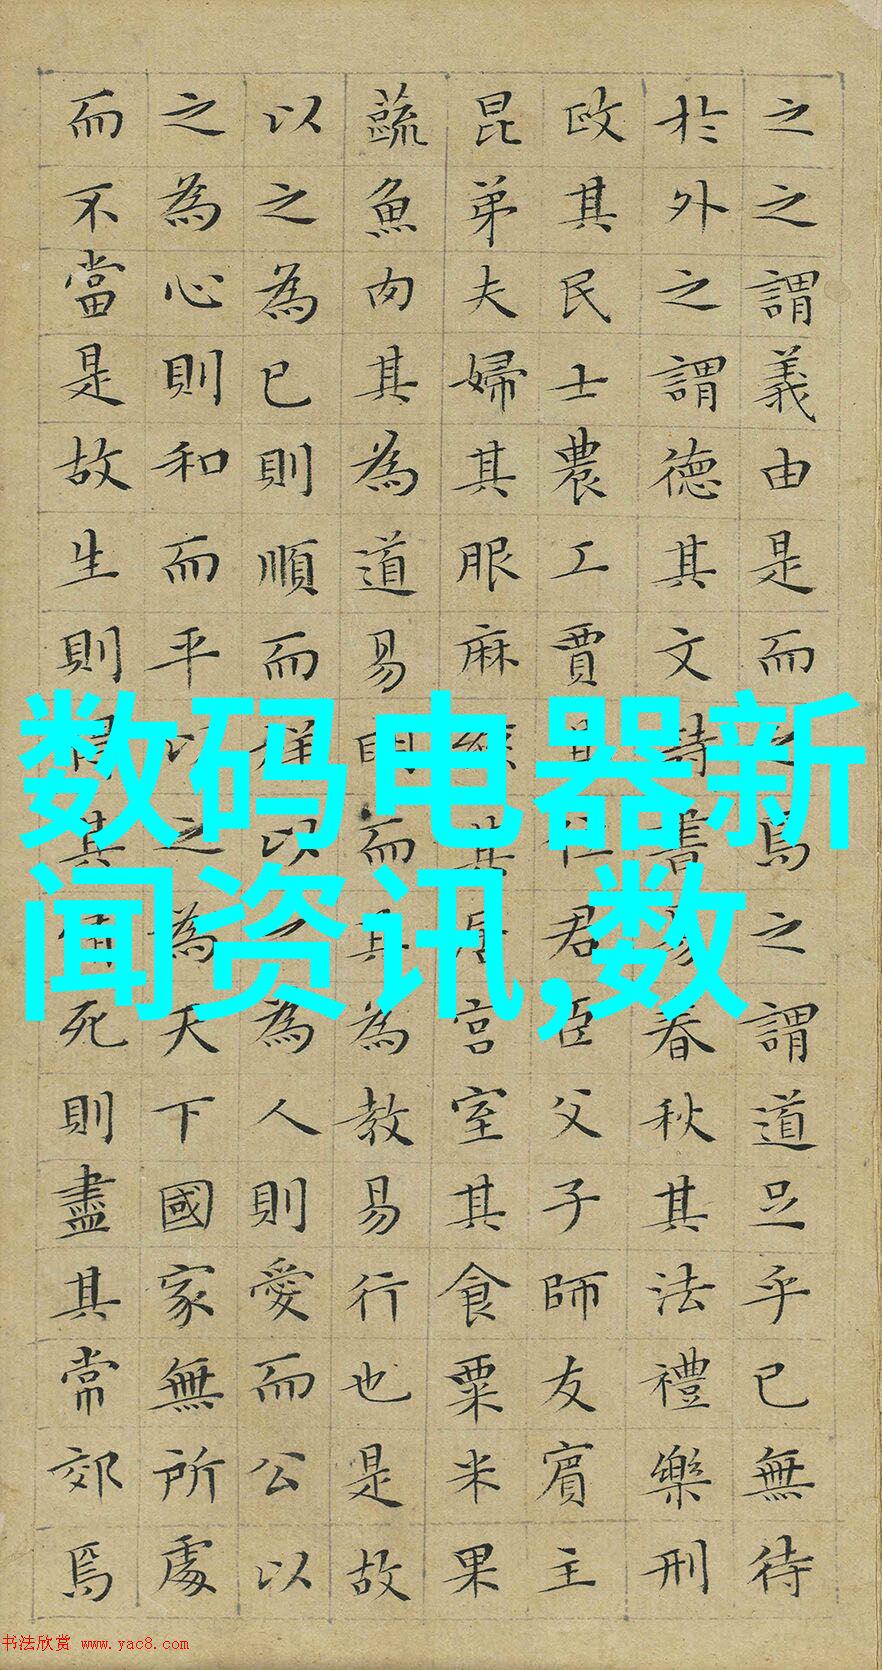 之之謂義由是而之焉之謂道足乎已無待
於外之謂德其文詩書易春秋其法禮樂刑
政其民士農工賈其位君臣父子師友賔主
昆弟夫婦其服麻絲其居宮室其食粟米果
蔬魚肉其為道易明而其為教易行也是故
以之為已則順而祥以之為人則愛而公以
之為心則和而平以之為天下國家無所處
而不當是故生則得其情死則盡其常郊焉
数码电器新
闻资讯,数
书法欣赏 www.yac8.com